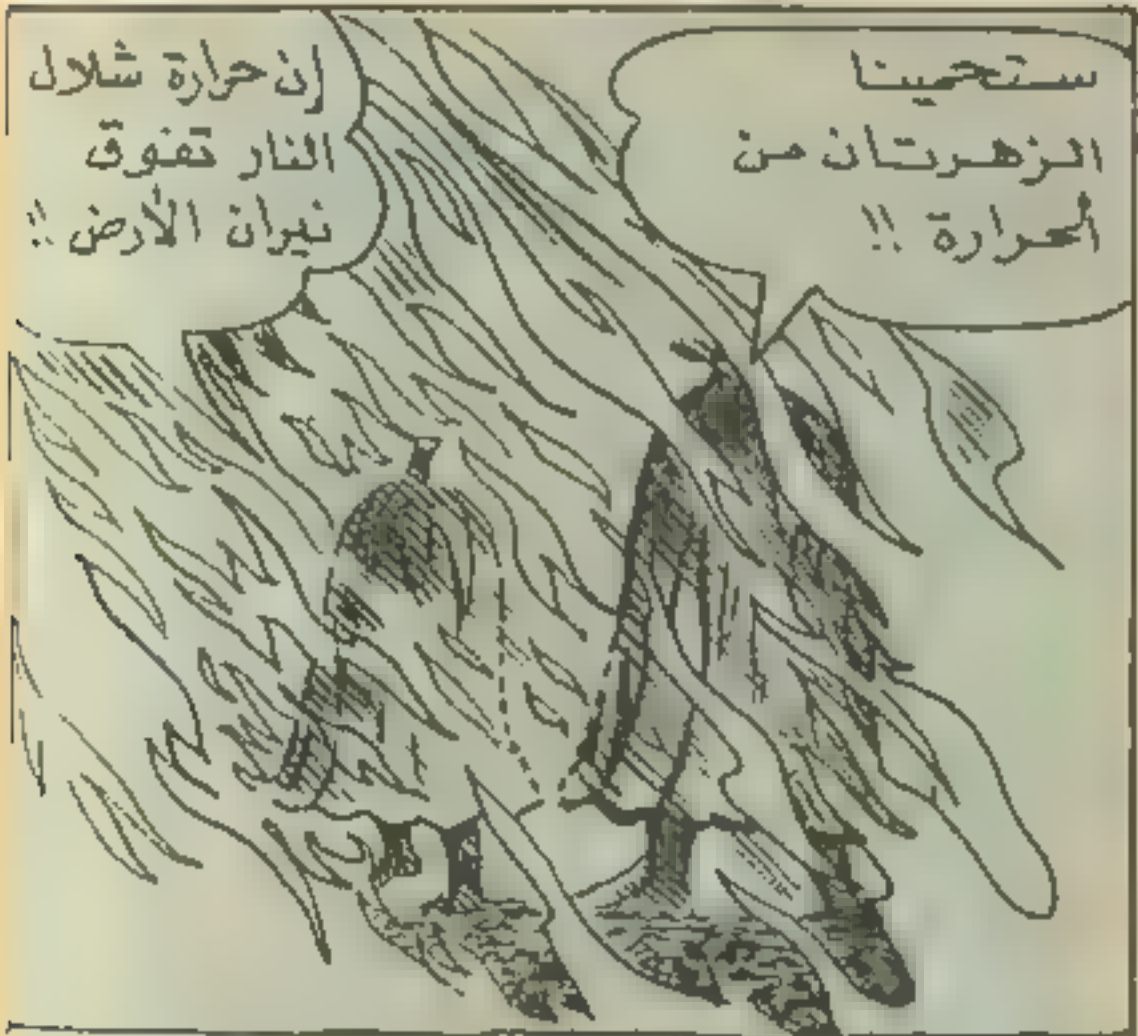 ستحمينا
الزهرتان من
الحرارة !!
إن حرارة شلال
النار تفوق
نيران الأرض !!